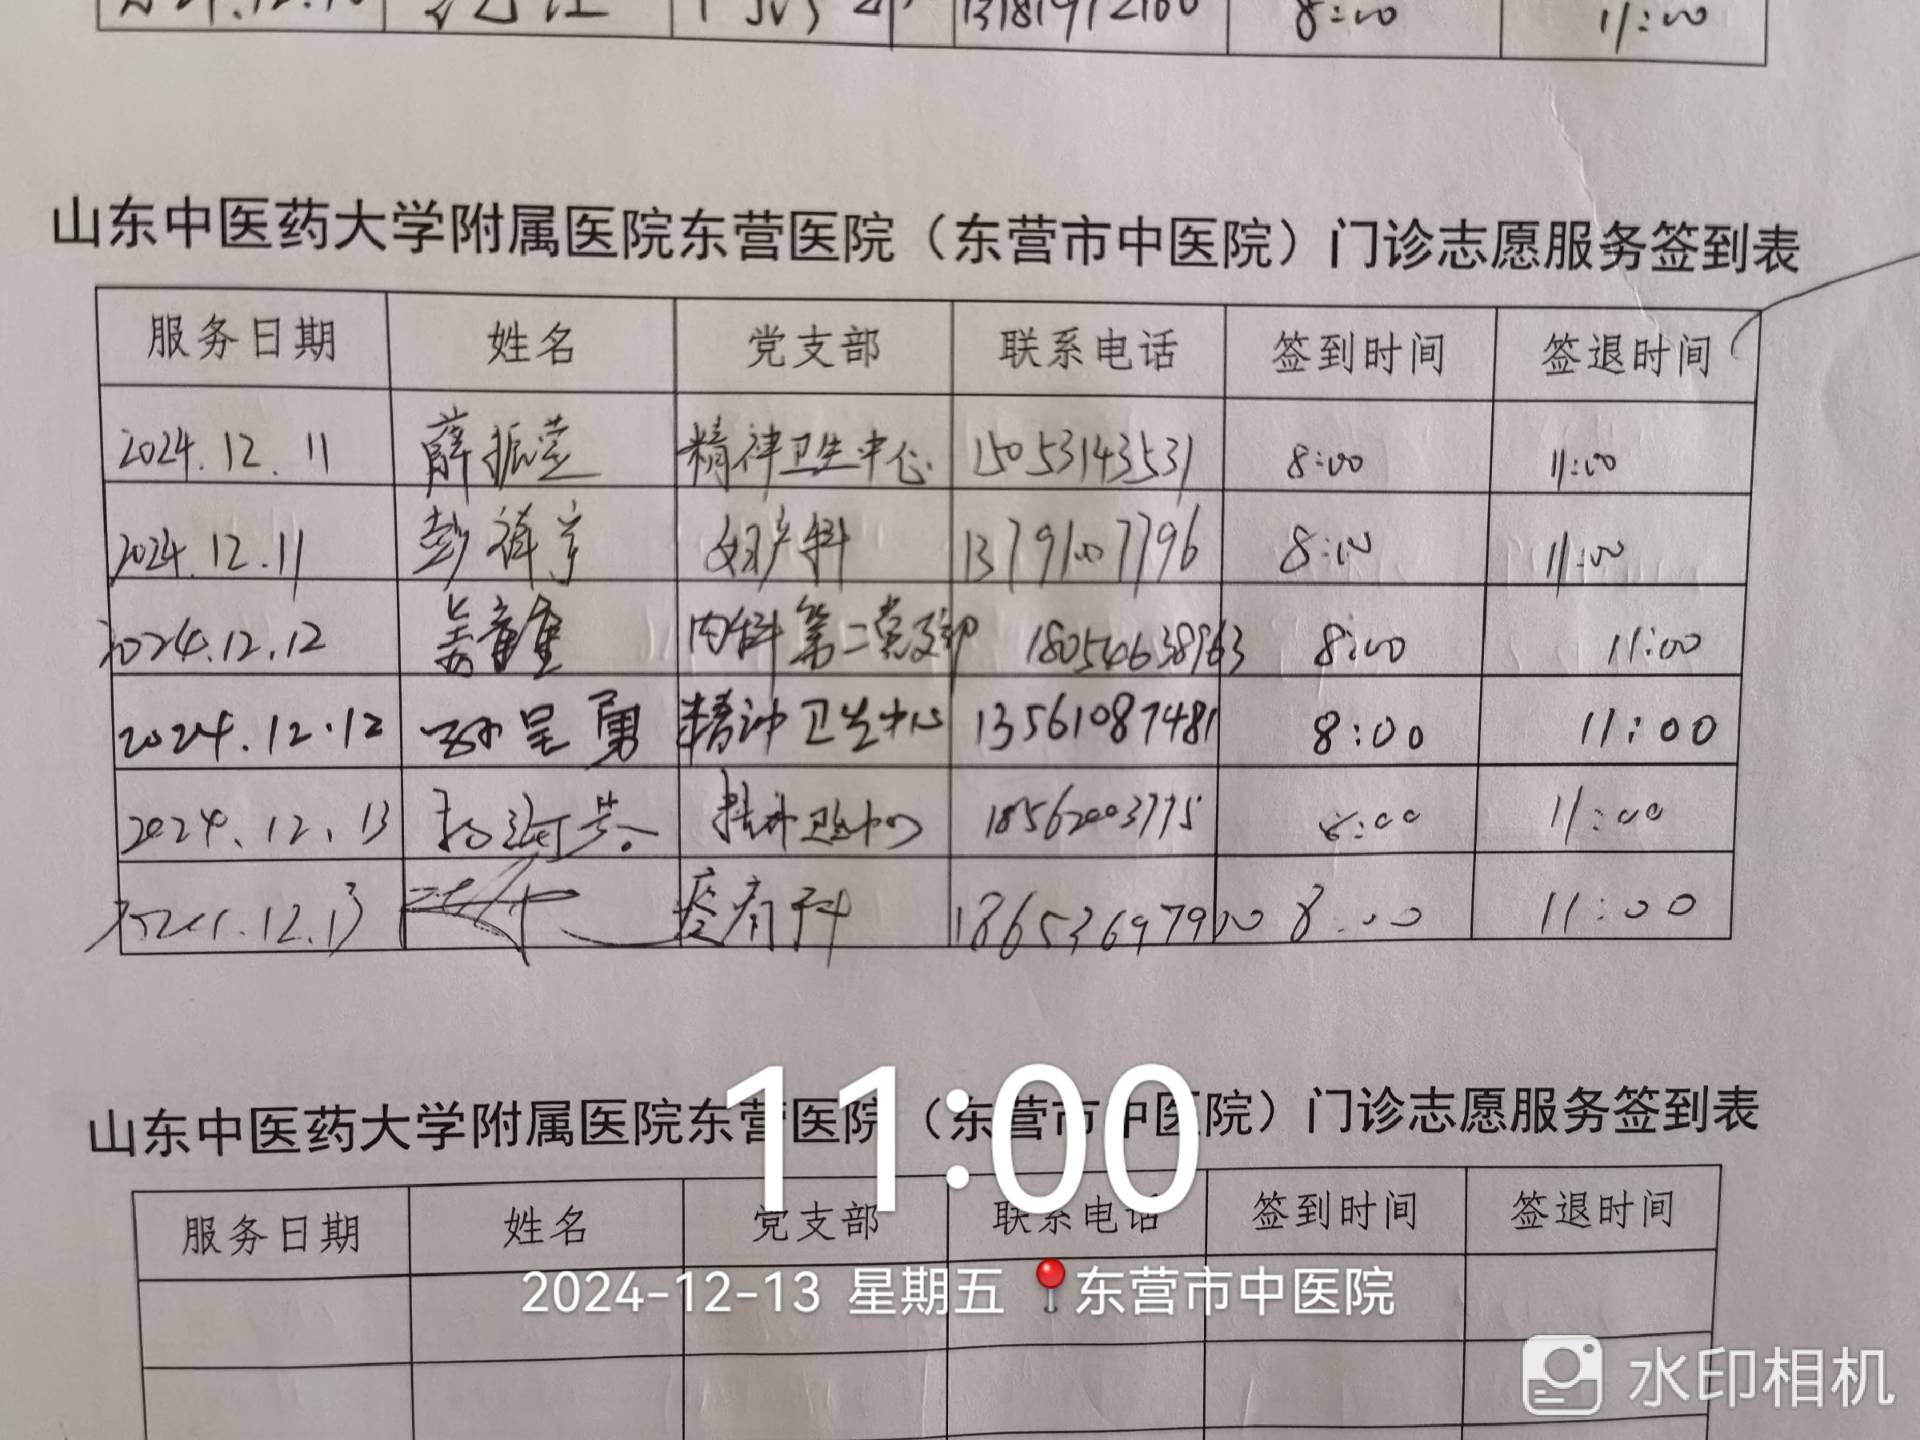 8:00 11:00
山东中医药大学附属医院东营医院（东营市中医院）门诊志愿服务签到表
服务日期 姓名 党支部 联系电话 签到时间 签退时间
2024.12.11 薛振 精神卫生中心 15053143531 8:00 11:00
2024.12.11 彭 妇产科 13791007796 8:00 11:00
2024.12.12 内科第二党支部 18054638963 8:00 11:00
2024.12.12 孙呈勇 精神卫生中心 13561087481 8:00 11:00
2024.12.13 精神卫生中心 8:00 11:00
12.13 8:00 11:00
山东中医药大学附属医院东营医院（东营市中医院）门诊志愿服务签到表
11:00
服务日期 姓名 党支部 联系电话 签到时间 签退时间
2024-12-13 星期五 东营市中医院
水印相机